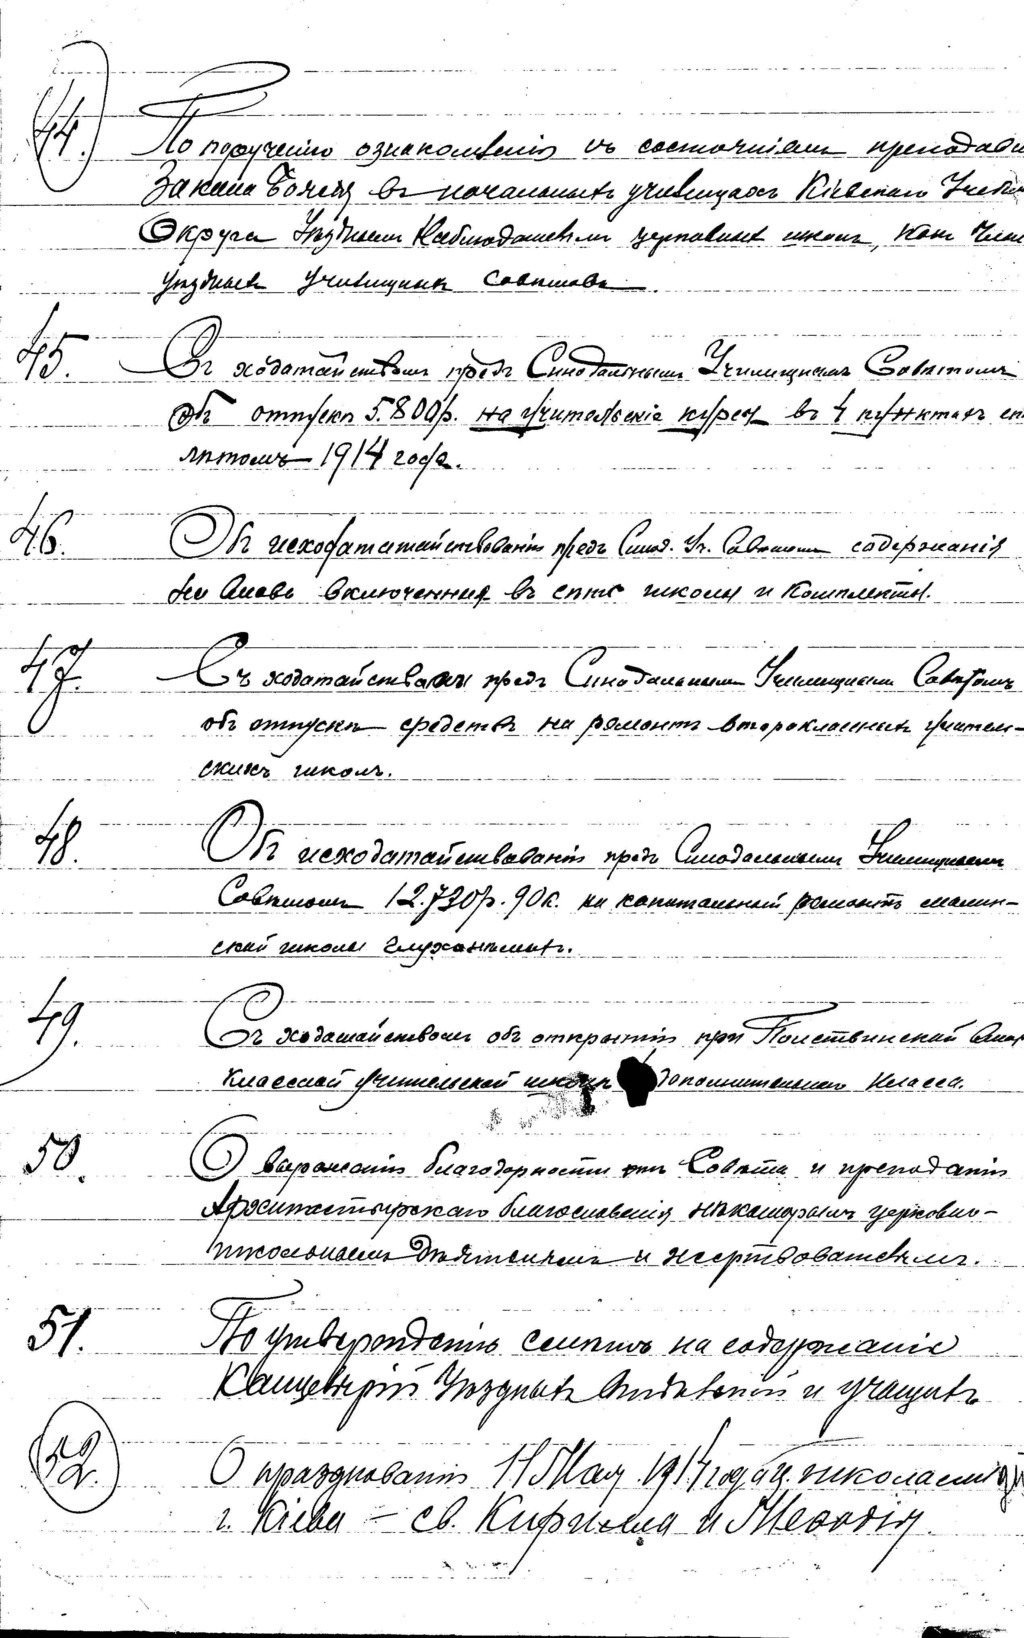 44. По порученію ознакомленія съ состояніемъ преподава
Закона Божія въ начальныхъ училищахъ Кіевскаго Учебн
Округа Уѣзднымъ Наблюдателямъ церковныхъ школъ, какъ Член
уѣздныхъ Училищныхъ Совѣтовъ.
45. Съ ходатайствомъ предъ Синодальнымъ Училищнымъ Совѣтомъ
объ отпускѣ 5.800р. на учительскіе курсы въ 4 пунктахъ еп
лѣтомъ 1914 года.
46. Объ исходатайствованіи предъ Синод. Уч. Совѣтомъ содержанія
на вновь включенныя въ сѣть школы и комплекты.
47. Съ ходатайствомъ предъ Синодальнымъ Училищнымъ Совѣтомъ
объ отпускѣ средствъ на ремонтъ второклассныхъ учитель-
скихъ школъ.
48. Объ исходатайствованіи предъ Синодальнымъ Училищнымъ
Совѣтомъ 12.730р. 90к. на капитальный ремонтъ
ской школы
49. Съ ходатайствомъ объ открытіи при Толстинской
классной учительской школѣ дополнительнаго класса.
50. О выраженіи благодарности отъ Совѣта и преподаніи
Архипастырскаго благословенія нѣкоторымъ церковно-
школьнымъ дѣятелямъ и жертвователямъ.
51. По утвержденію смѣтъ на содержаніе
Канцелярій Уѣздныхъ Отдѣленій и учащихъ
52. О празднованіи 11 Мая 1914 года школами
г. Кіева – св. Кирилла и Меѳодія.